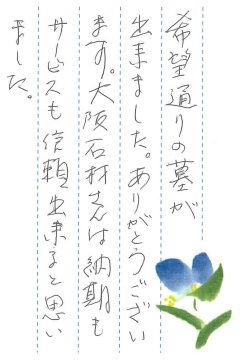 希望通りの墓が
出来ました。ありがとうござい
ます。大阪石材さんは納期も
サービスも信頼出来ると思い
ました。